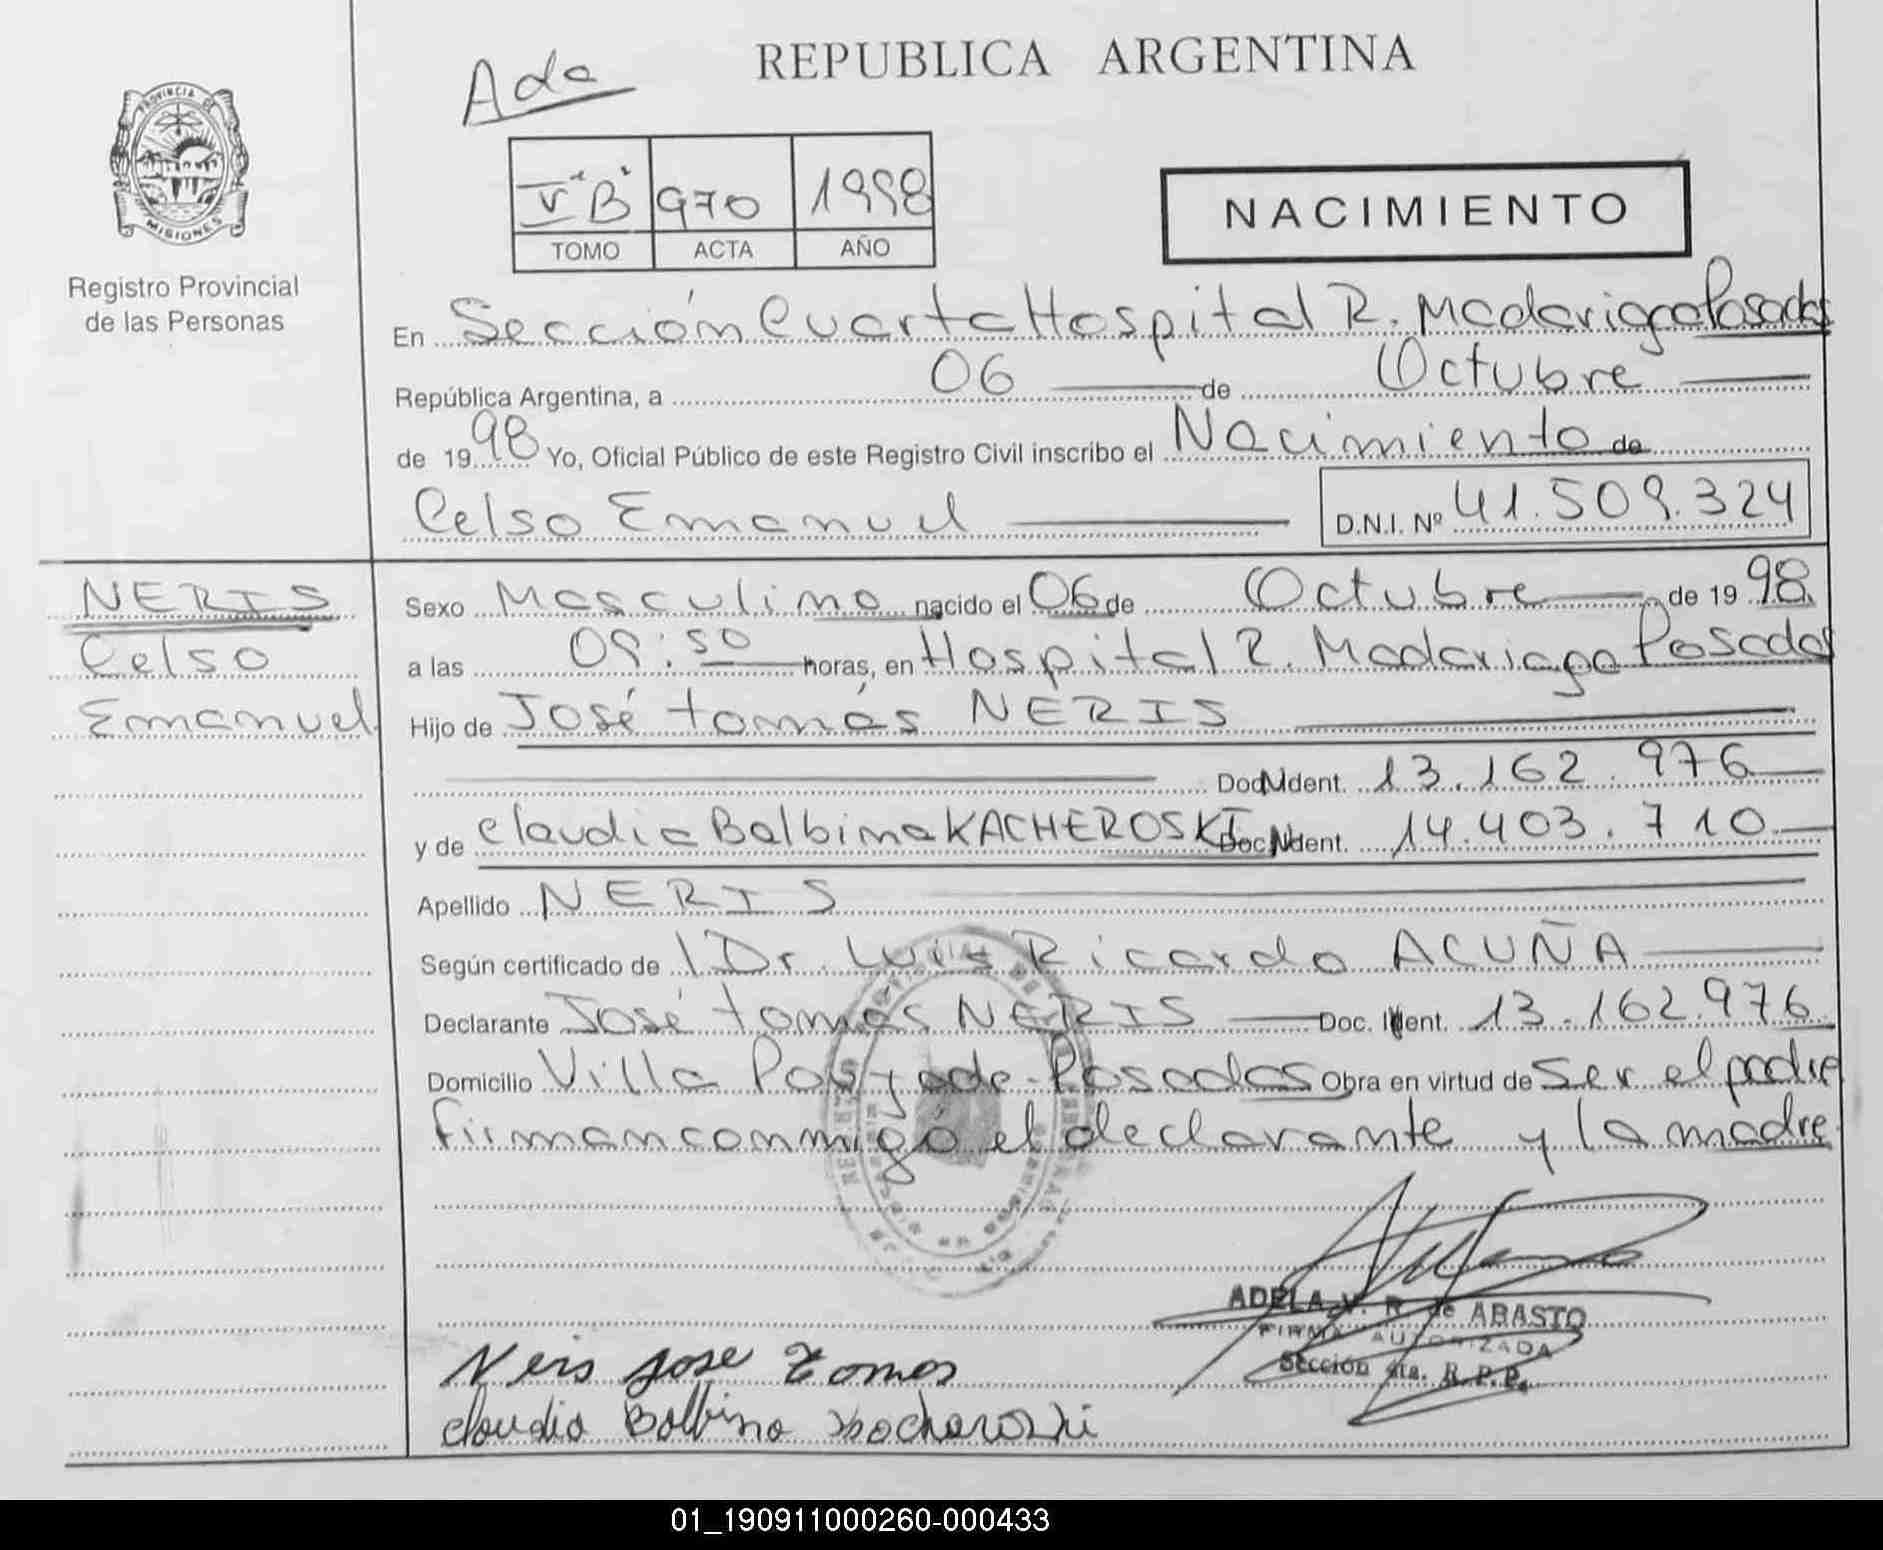 REPUBLICA ARGENTINA
Ada
PROVINCIA DE
MISIONES
Registro Provincial
de las Personas
V "B" 970 1998
TOMO ACTA AÑO
NACIMIENTO
En Sección Cuarta Hospital R. Madariaga Posadas
República Argentina, a 06 de Octubre
de 1998 Yo, Oficial Público de este Registro Civil inscribo el Nacimiento de
Celso Emanuel D.N.I. Nº 41.509.324
NERIS
Celso
Emanuel
Sexo Masculino nacido el 06 de Octubre de 1998.
a las 09:50 horas, en Hospital R. Madariaga Posadas
Hijo de José tomás NERIS
Doc. Ident. 13.162.976
y de Claudia Balbina KACHEROSKI Doc. Ident. 14.403.710
Apellido NERIS
Según certificado de Dr. Luis Ricardo ACUÑA
Declarante José tomás NERIS Doc. Ident. 13.162.976
Domicilio Villa Posadas Obra en virtud de Ser el padre
firman conmigo el declarante y la madre
ADELA V. R. de ABASTO
FIRMA AUTORIZADA
Sección 4ta. R.P.P.
Neris Jose Tomas
Claudia Balbina
01_190911000260-000433